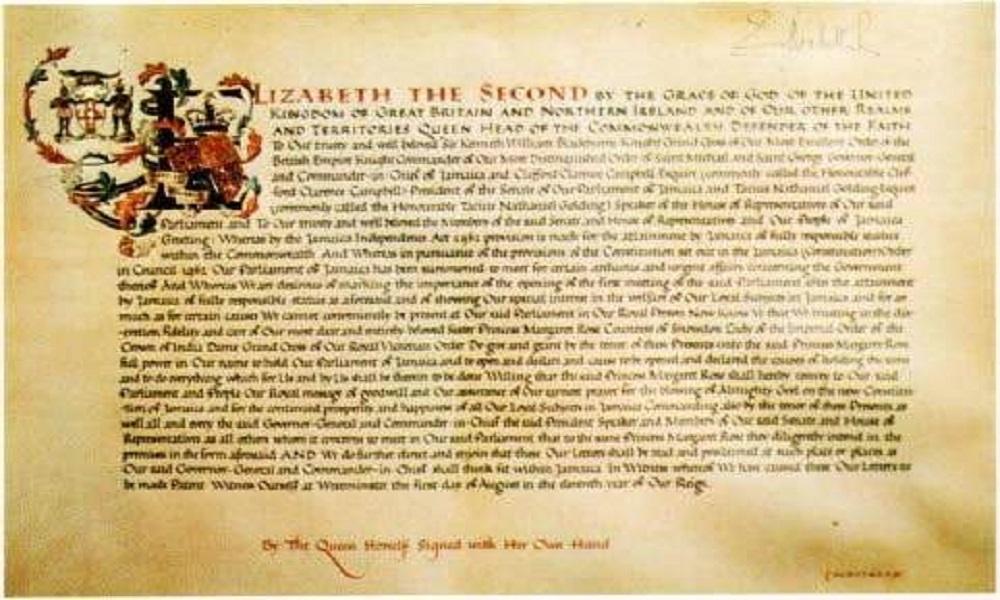 LIZABETH THE SECOND BY THE GRACE OF GOD OF THE UNITED
KINGDOM OF GREAT BRITAIN AND NORTHERN IRELAND AND OF OUR OTHER REALMS
AND TERRITORIES QUEEN HEAD OF THE COMMONWEALTH DEFENDER OF THE FAITH
To Our trusty and well beloved Sir Kenneth William Blackburne Knight Grand Cross of Our Most Excellent Order of the
British Empire Knight Commander of Our Most Distinguished Order of Saint Michael and Saint George Governor-General
and Commander-in-Chief of Jamaica and Clifford Clarence Campbell Esquire (commonly called the Honourable Clif-
ford Clarence Campbell) President of the Senate of Our Parliament of Jamaica and Tacius Nathaniel Golding Esquire
(commonly called the Honourable Tacius Nathaniel Golding) Speaker of the House of Representatives of Our said
Parliament and To Our trusty and well beloved the Members of the said Senate and House of Representatives and Our People of Jamaica
Greeting: Whereas by the Jamaica Independence Act 1962 provision is made for the attainment by Jamaica of fully responsible status
within the Commonwealth And Whereas in pursuance of the provisions of the Constitution set out in the Jamaica (Constitution) Order
in Council 1962 Our Parliament of Jamaica has been summoned to meet for certain arduous and urgent affairs concerning the Government
thereof And Whereas We are desirous of marking the importance of the opening of the first meeting of the said Parliament after the attainment
by Jamaica of fully responsible status as aforesaid and of showing Our special interest in the welfare of Our Loyal Subjects in Jamaica and for as
much as for certain causes We cannot conveniently be present at Our said Parliament in Our Royal Person Now Know Ye that We trusting in the dis-
cretion fidelity and care of Our most dear and entirely beloved Sister Princess Margaret Rose Countess of Snowdon Lady of the Imperial Order of the
Crown of India Dame Grand Cross of Our Royal Victorian Order Do give and grant by the tenor of these Presents unto the said Princess Margaret Rose
full power in Our name to hold Our Parliament of Jamaica and to open and declare and cause to be opened and declared the causes of holding the same
and to do everything which for Us and by Us shall be therein to be done Willing that the said Princess Margaret Rose shall hereby convey to Our said
Parliament and People Our Royal message of goodwill and Our assurance of Our earnest prayer for the blessing of Almighty God on the new Constitu-
tion of Jamaica and for the continued prosperity and happiness of all Our Loyal Subjects in Jamaica Commanding also by the tenor of these Presents as
well all and every the said Governor-General and Commander-in-Chief the said President Speaker and Members of Our said Senate and House of
Representatives as all others whom it concerns to meet in Our said Parliament that to the same Princess Margaret Rose they diligently intend in the
premises in the form aforesaid AND We do further direct and enjoin that these Our Letters shall be read and proclaimed at such place or places as
Our said Governor-General and Commander-in-Chief shall think fit within Jamaica In Witness whereof We have caused these Our Letters to
be made Patent Witness Ourself at Westminster the first day of August in the eleventh year of Our Reign
By The Queen Herself Signed with Her Own Hand